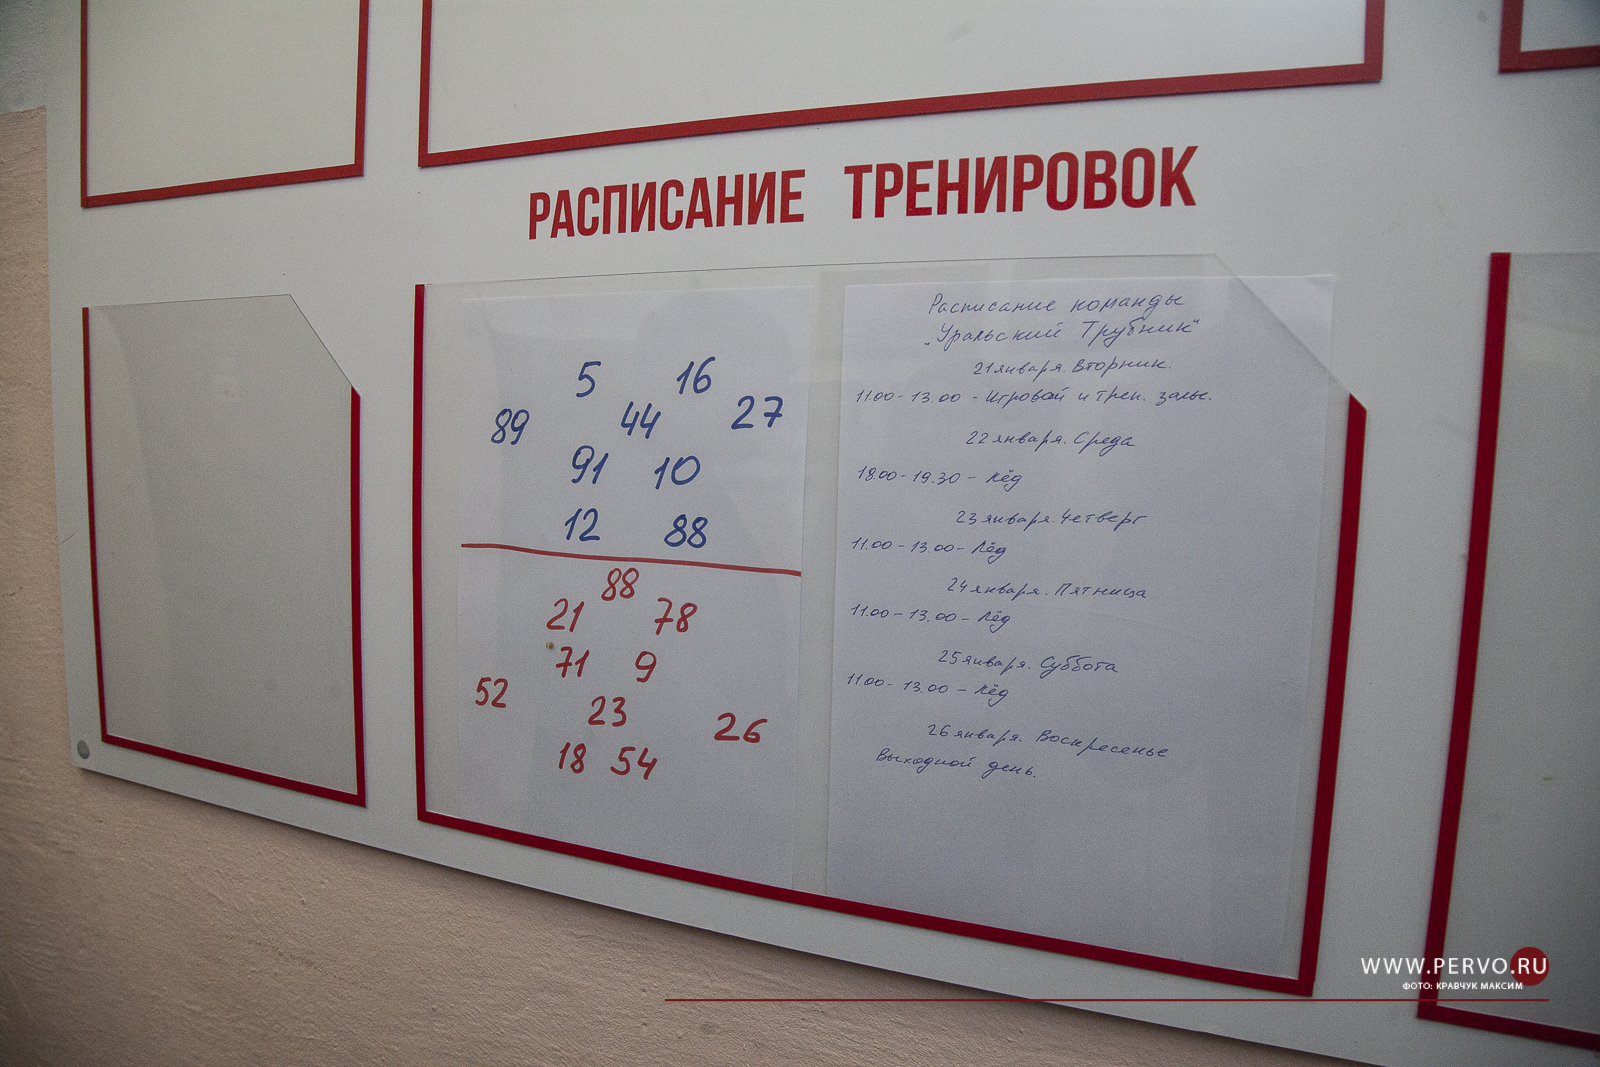 РАСПИСАНИЕ ТРЕНИРОВОК
5 16
89 44 27
91 10
12 88
88
21 78
71 9
52 23 26
18 54
Расписание команды
„Уральский Трубник"
21 января. Вторник.
11.00 - 13.00 - Игровой и трен. залы.
22 января. Среда
18.00 - 19.30 - Лёд
23 января. Четверг
11.00 - 13.00 - Лёд
24 января. Пятница
11.00 - 13.00 - Лёд
25 января. Суббота
11.00 - 13.00 - Лёд
26 января. Воскресенье
Выходной день.
WWW.PERVO.RU
ФОТО: КРАВЧУК МАКСИМ